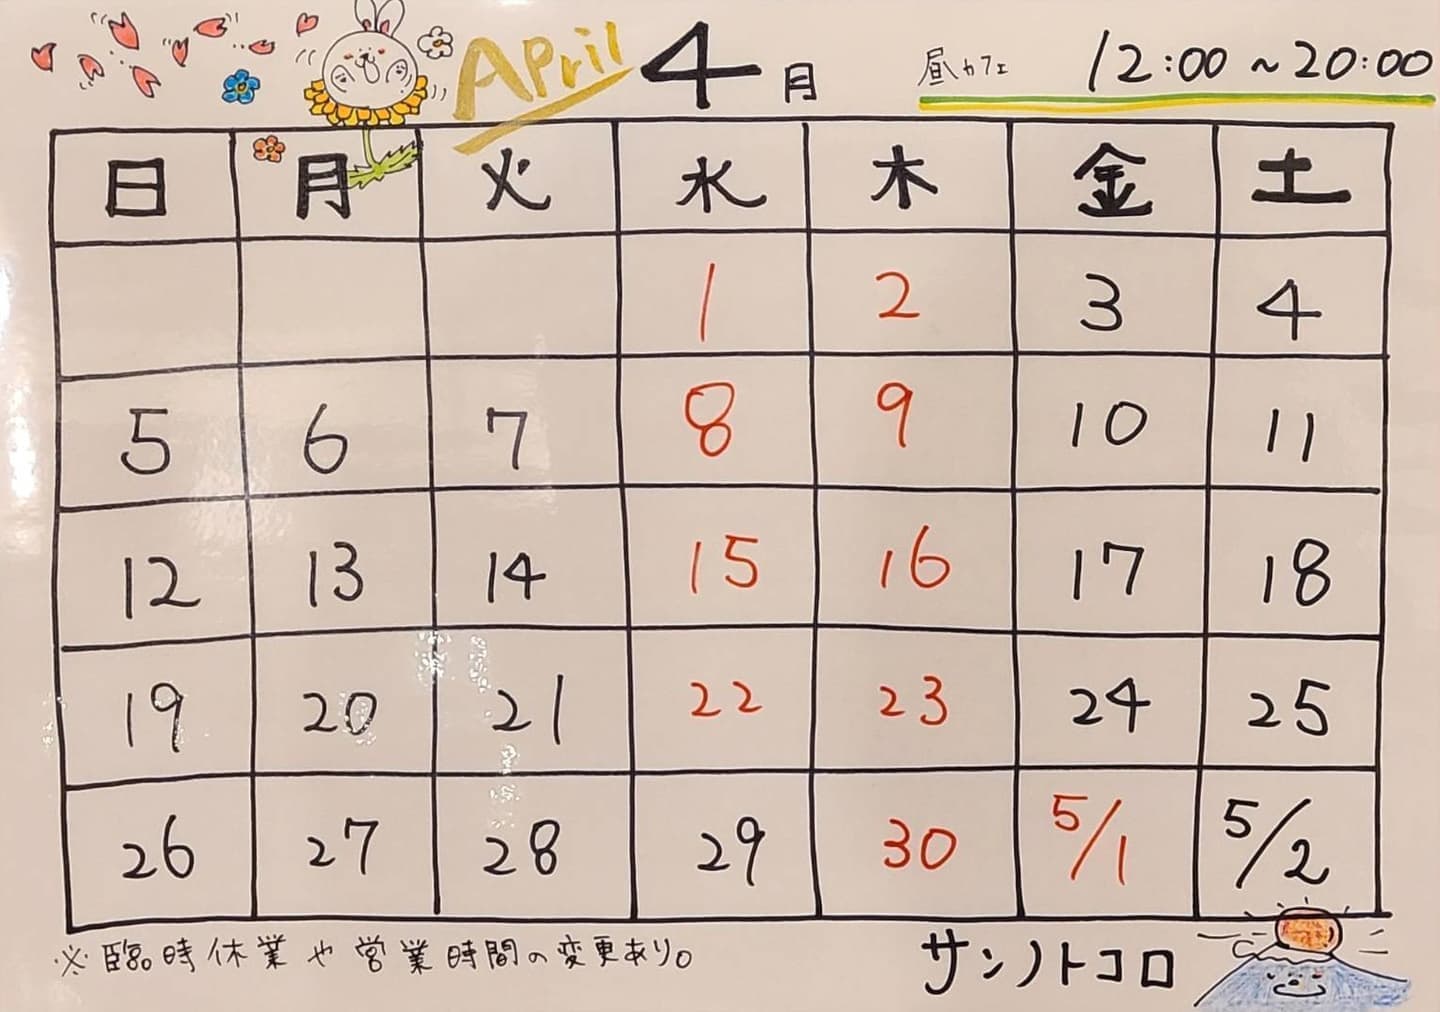 April 4月 昼カフェ 12:00~20:00
日 月 火 水 木 金 土
1 2 3 4
5 6 7 8 9 10 11
12 13 14 15 16 17 18
19 20 21 22 23 24 25
26 27 28 29 30 5/1 5/2
※臨時休業や営業時間の変更あり。
サンノトコロ